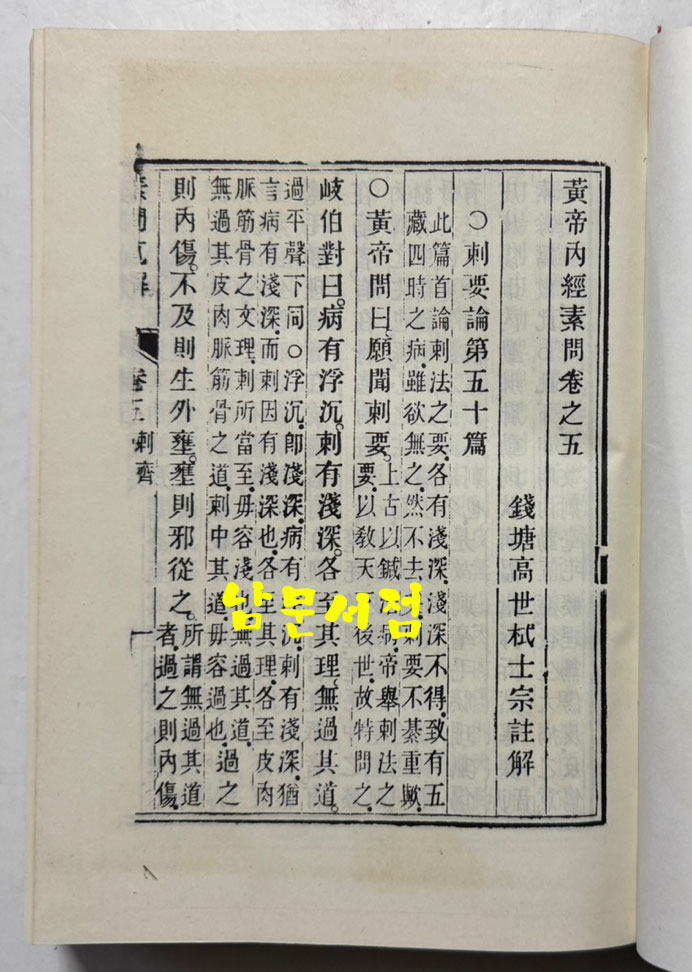 黃帝內經素問卷之五
錢塘高世栻士宗註解
○刺要論第五十篇
此篇首論刺法之要.各有淺深.淺深不得.致有五
藏四時之病.雖欲無之.然不去.刺要不綦重歟.
○黃帝問曰.願聞刺要.
上古以鍼治病.帝舉刺法之
要.以敎天下後世.故特問之.
岐伯對曰.病有浮沉.刺有淺深.各至其理.無過其道.
過平聲下同○浮沉.卽淺深.病有浮沉.刺有淺深.猶
言病有淺深.而刺因有淺深也.各至其理.各至皮肉
脈筋骨之文理.刺所當至.毋容淺也.無過其道.
無過其皮肉脈筋骨之道.刺中其道.毋容過也.過之
則內傷.不及則生外壅.壅則邪從之.
所謂無過其道
者.過之則內傷.
素問直解
卷五 刺齊
一
남문서점